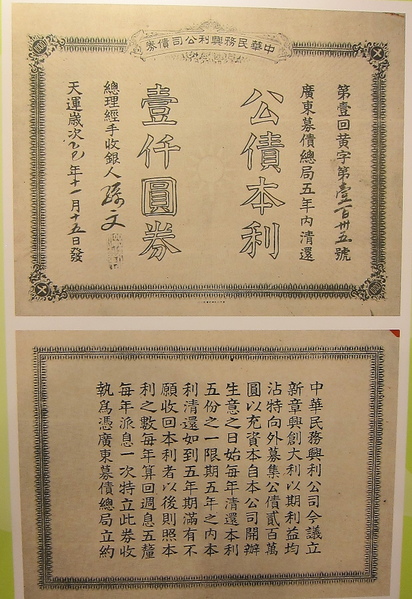 中華民務興利公司債券
第壹回黃字第壹百卅五號
廣東募債總局五年內清還
公債本利
壹仟圓券
總理經手收銀人孫文
天運歲次乙巳年十一月十五日發
中華民務興利公司今議立
新章興創大利以期利益均
沾特向外募集公債貳百萬
圓以充資本自本公司開辦
生意之日始每年清還本利
五份之一限期五年之內本
利清還如到五年期滿有不
願收回本利者以後則照本
利之數每年算回週息五釐
每年派息一次特立此券收
執爲憑廣東募債總局立約